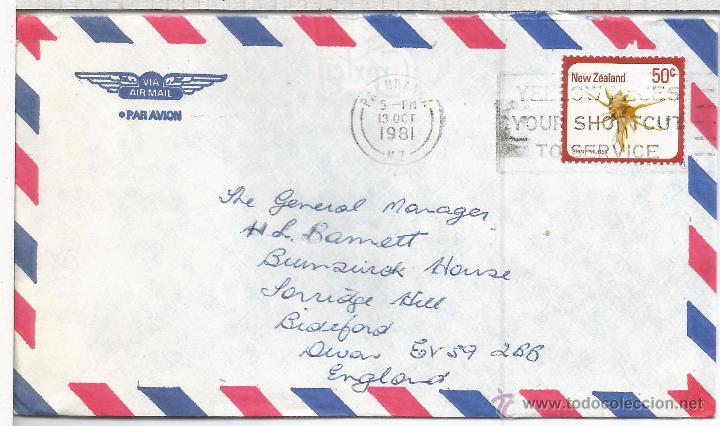 VIA
AIR MAIL
•PAR AVION
5-PM
13 OCT
1981
N.Z.
YELLOW PAGES
YOUR SHORTCUT
TO SERVICE
New Zealand 50c
The General Manager
H L. Barnett
House
Hill
Bideford
Devon EX39 2BB
England
www.todocoleccion.net